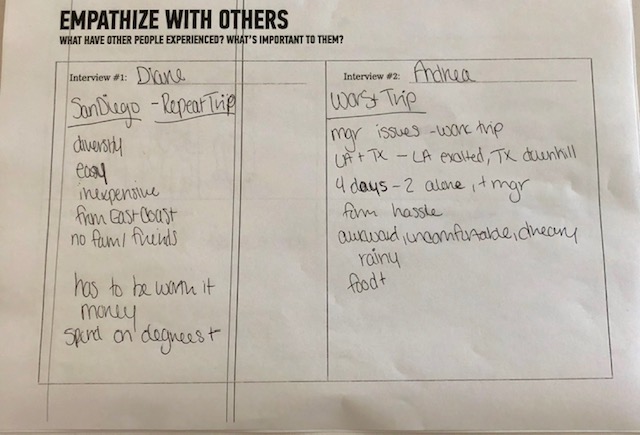 EMPATHIZE WITH OTHERS
WHAT HAVE OTHER PEOPLE EXPERIENCED? WHAT'S IMPORTANT TO THEM?
Interview #1: Diane
San Diego - Repeat Trip
diversity
easy
inexpensive
from East Coast
no fam/ friends
has to be worth it
money
spend on degrees +
Interview #2: Andrea
Worst Trip
mgr issues - work trip
LA + TX - LA exalted, TX downhill
4 days - 2 alone, + mgr
hassle
awkward, uncomfortable, dreary
rainy
food +